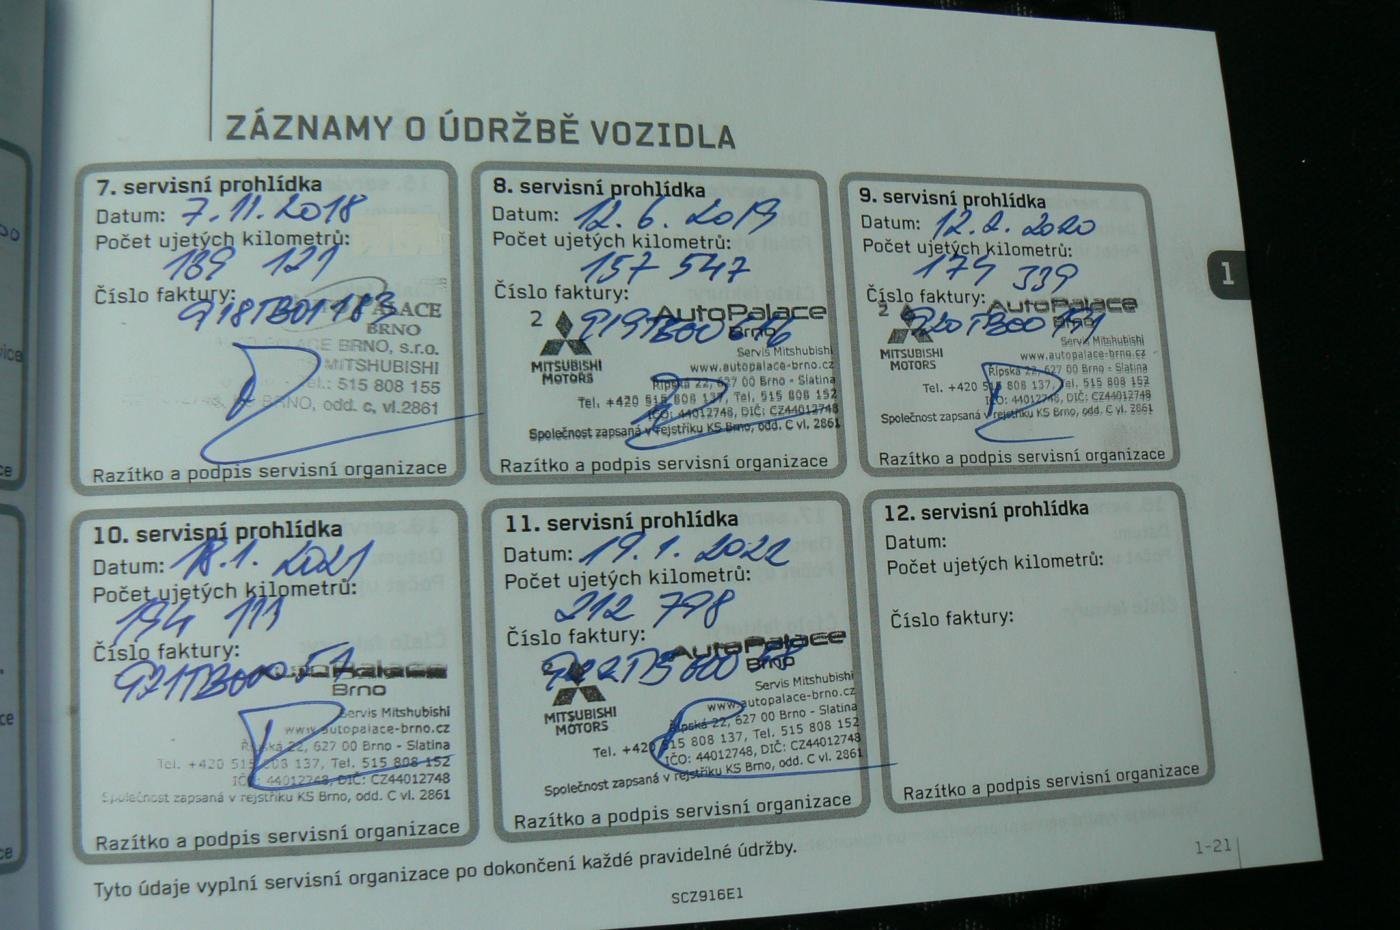 ZÁZNAMY O ÚDRŽBĚ VOZIDLA
7. servisní prohlídka
Datum: 7.11.2018
Počet ujetých kilometrů:
139 121
Číslo faktury:
PALACE
BRNO
PALACE BRNO, s.r.o.
MITSHUBISHI
Tel.: 515 808 155
KS BRNO, odd. c, vl.2861
Razítko a podpis servisní organizace
8. servisní prohlídka
Datum: 12.6.2019
Počet ujetých kilometrů:
157 547
Číslo faktury:
2
AutoPalace
Brno
MITSUBISHI
MOTORS
Servis Mitshubishi
www.autopalace-brno.cz
Řípská 22, 627 00 Brno - Slatina
Tel. +420 515 808 137, Tel. 515 808 152
IČO: 44012748, DIČ: CZ44012748
Společnost zapsaná v rejstříku KS Brno, odd. C vl. 2861
Razítko a podpis servisní organizace
9. servisní prohlídka
Datum: 12.2.2020
Počet ujetých kilometrů:
179 339
Číslo faktury:
2
AutoPalace
Brno
MITSUBISHI
MOTORS
Servis Mitshubishi
www.autopalace-brno.cz
Řípská 22, 627 00 Brno - Slatina
Tel. +420 515 808 137, Tel. 515 808 152
IČO: 44012748, DIČ: CZ44012748
Společnost zapsaná v rejstříku KS Brno, odd. C vl. 2861
Razítko a podpis servisní organizace
1
10. servisní prohlídka
Datum: 18.1.2021
Počet ujetých kilometrů:
194 111
Číslo faktury:
AutoPalace
Brno
Servis Mitshubishi
www.autopalace-brno.cz
Řípská 22, 627 00 Brno - Slatina
Tel. +420 515 808 137, Tel. 515 808 152
IČO: 44012748, DIČ: CZ44012748
Společnost zapsaná v rejstříku KS Brno, odd. C vl. 2861
Razítko a podpis servisní organizace
11. servisní prohlídka
Datum: 19.1.2022
Počet ujetých kilometrů:
212 798
Číslo faktury:
AutoPalace
Brno
MITSUBISHI
MOTORS
Servis Mitshubishi
www.autopalace-brno.cz
Řípská 22, 627 00 Brno - Slatina
Tel. +420 515 808 137, Tel. 515 808 152
IČO: 44012748, DIČ: CZ44012748
Společnost zapsaná v rejstříku KS Brno, odd. C vl. 2861
Razítko a podpis servisní organizace
12. servisní prohlídka
Datum:
Počet ujetých kilometrů:
Číslo faktury:
Razítko a podpis servisní organizace
Tyto údaje vyplní servisní organizace po dokončení každé pravidelné údržby.
1-21
SCZ916E1